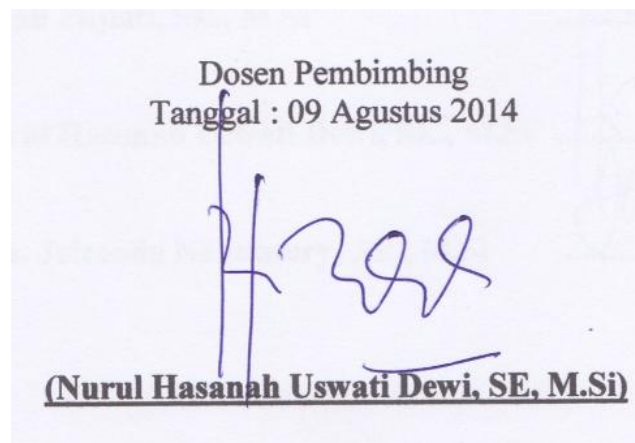 Dosen Pembimbing
Tanggal : 09 Agustus 2014
(Nurul Hasanah Uswati Dewi, SE, M.Si)